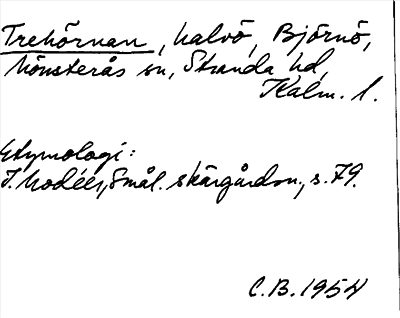 Trehörnan, halvö, Björnö,
Mönsterås sn, Stranda hd,
Kalm. l.
Etymologi:
J. Modéer, Smål. skärgårdsn., s. 79.
C.B. 1954